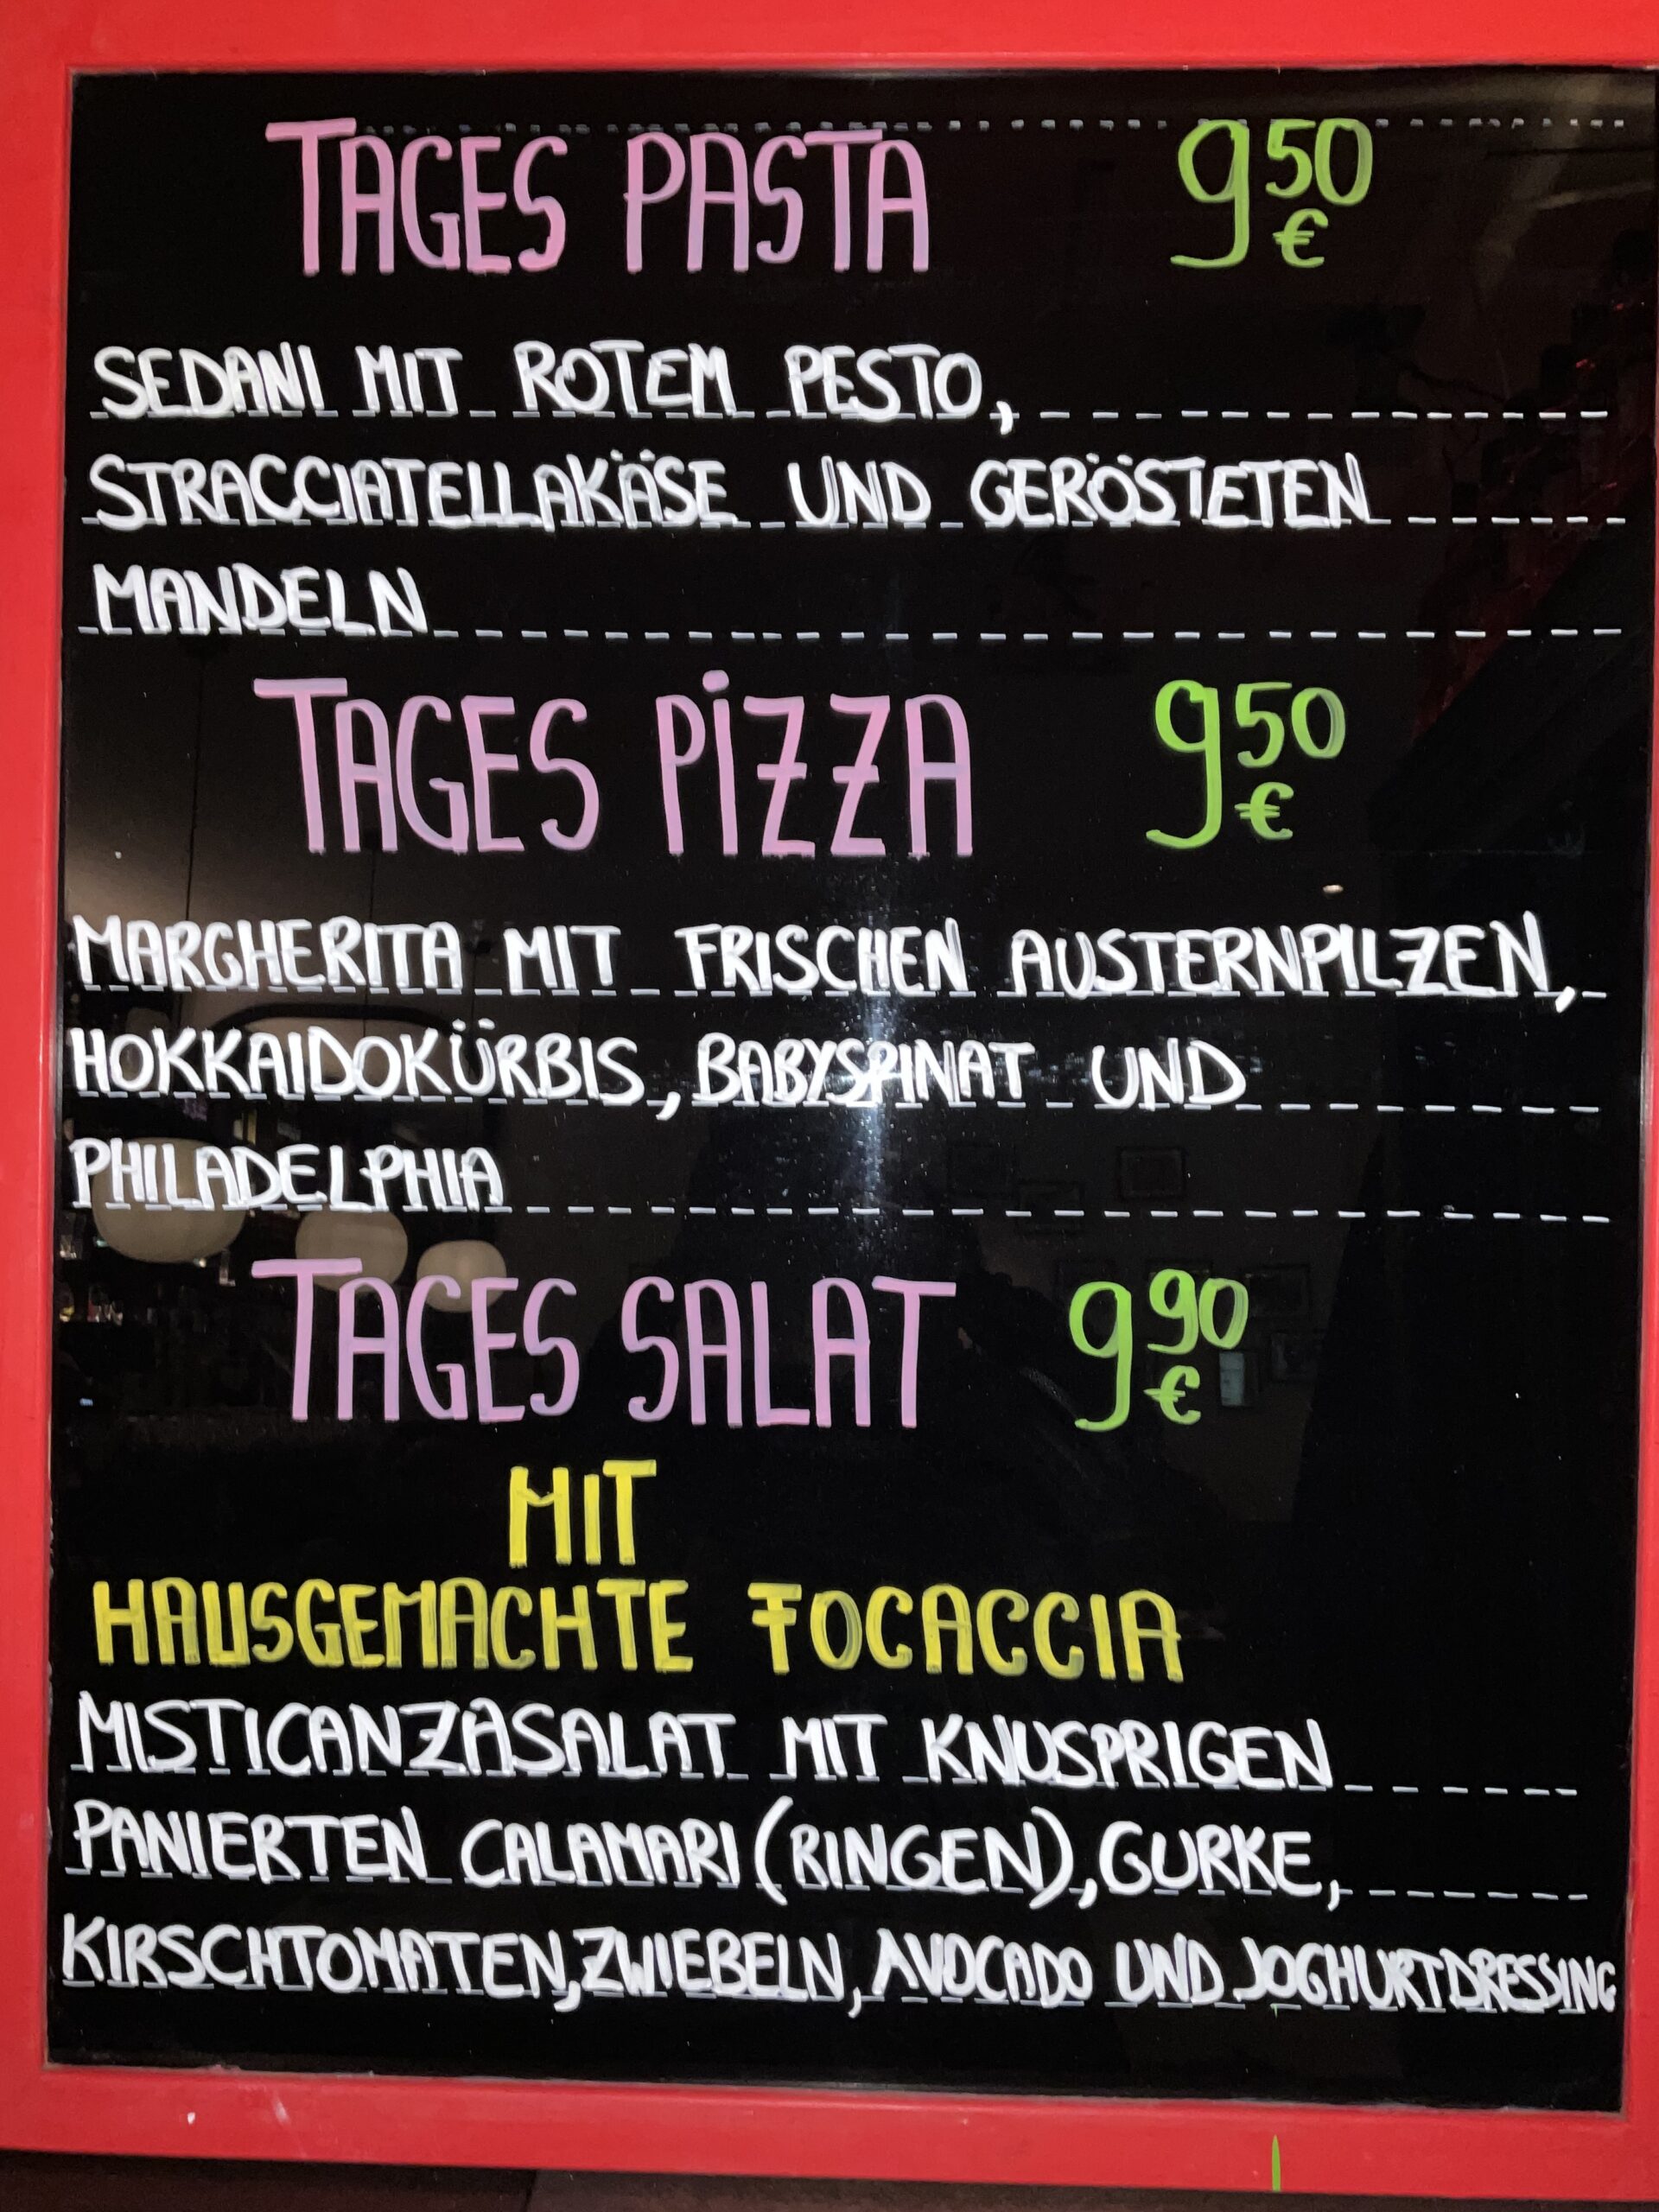 TAGES PASTA 9 50 €
SEDANI MIT ROTEM PESTO,
STRACCIATELLAKÄSE UND GERÖSTETEN
MANDELN
TAGES PIZZA 9 50 €
MARGHERITA MIT FRISCHEN AUSTERNPILZEN,
HOKKAIDOKÜRBIS, BABYSPINAT UND
PHILADELPHIA
TAGES SALAT 9 90 €
MIT
HAUSGEMACHTE FOCACCIA
MISTICANZASALAT MIT KNUSPRIGEN
PANIERTEN CALAMARI (RINGEN), GURKE,
KIRSCHTOMATEN, ZWIEBELN, AVOCADO UND JOGHURTDRESSING